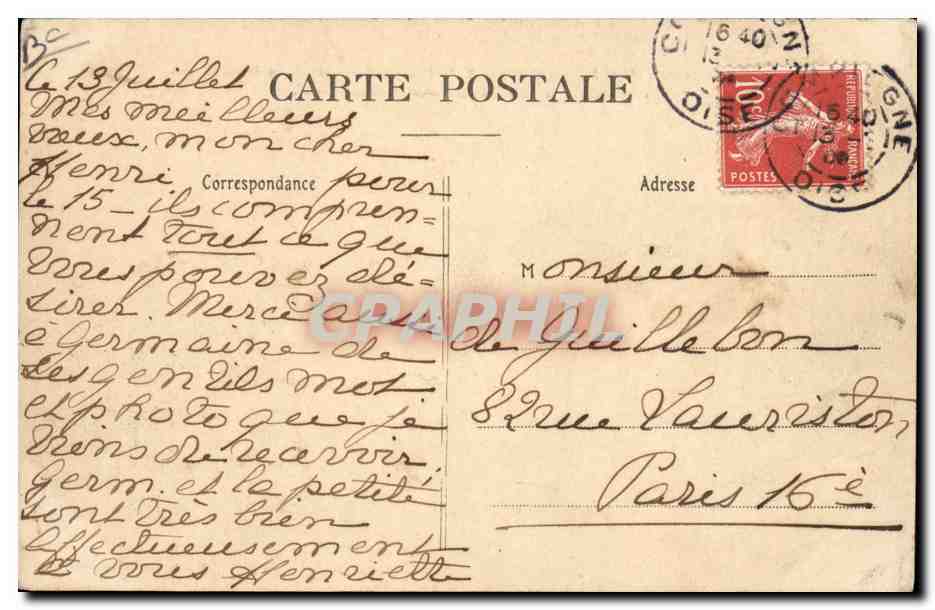 Bc
CARTE POSTALE
Correspondance
Adresse
Le 13 Juillet
Mes meilleurs
vœux, mon cher
Henri pour
le 15 - ils compren-
nent tout ce que
vous pouvez dé-
sirer. Merci aussi
à Germaine de
ses gentils mot
et photo que je
viens de recevoir.
Germ. et la petite
sont très bien
affectueusement
à vous Henriette
Monsieur
de Guillebon
82 rue Lauriston
Paris 16e
10c
REPUBLIQUE FRANCAISE
POSTES
16 40
13
OISE
COMPIEGNE
13
OISE
CPAPHIL